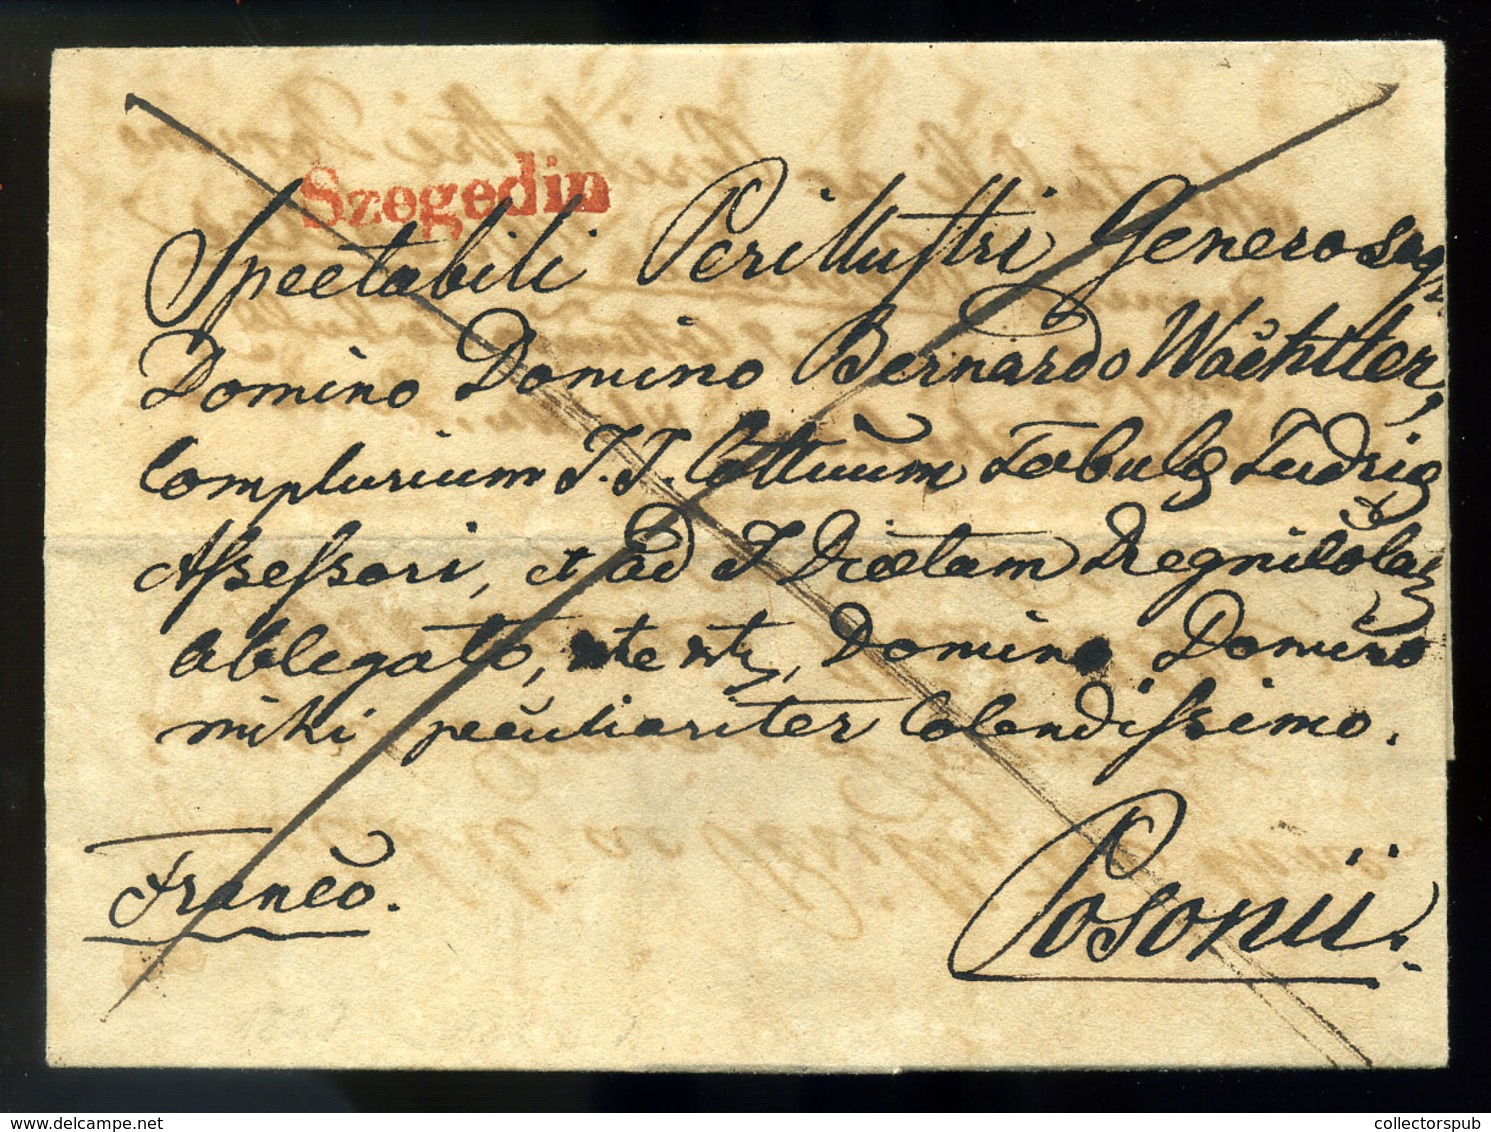 Szegedin
Spectabili Perillustri Generosoq
Domino Domino Bernardo Wachtler,
Complurium I. I. Cottuum Tabulæ Judriæ
Assessori, et ad I Diætam Regnicolar
ablegato, Domino Domino
mihi peculiariter Colendissimo.
Franco.
Posonii.
darabanth.com
collectorspub